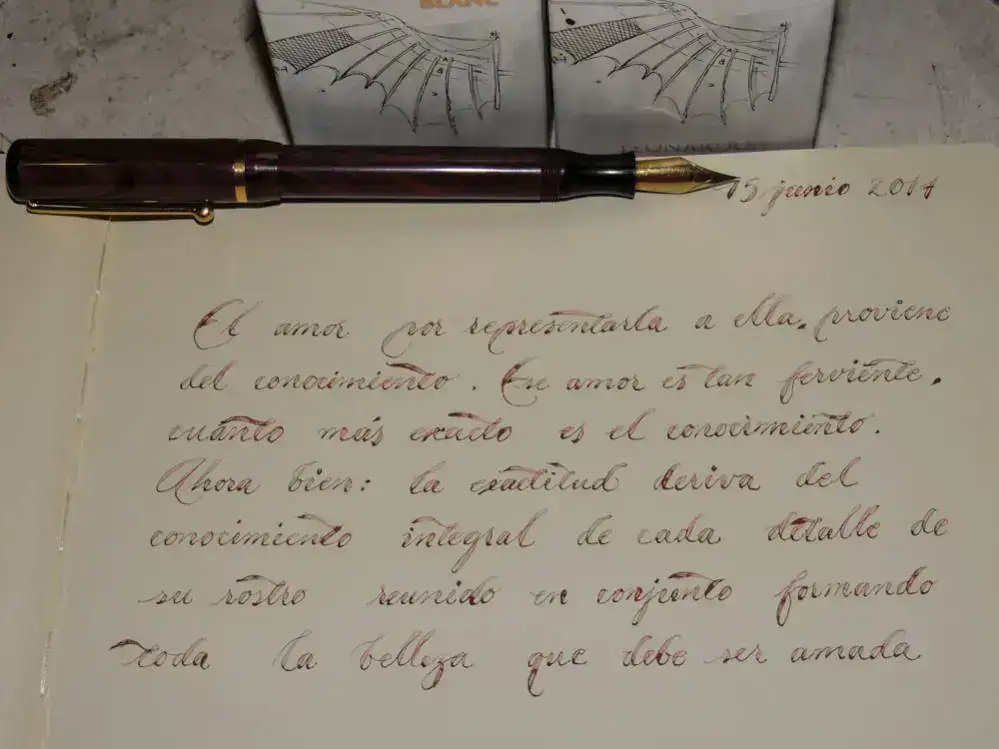 BLANC
LEONARDO
15 junio 2014
El amor por representarla a ella, proviene
del conocimiento. Ese amor es tan ferviente,
cuanto más exacto es el conocimiento.
Ahora bien: la exactitud deriva del
conocimiento integral de cada detalle de
su rostro reunido en conjunto formando
toda la belleza que debe ser amada